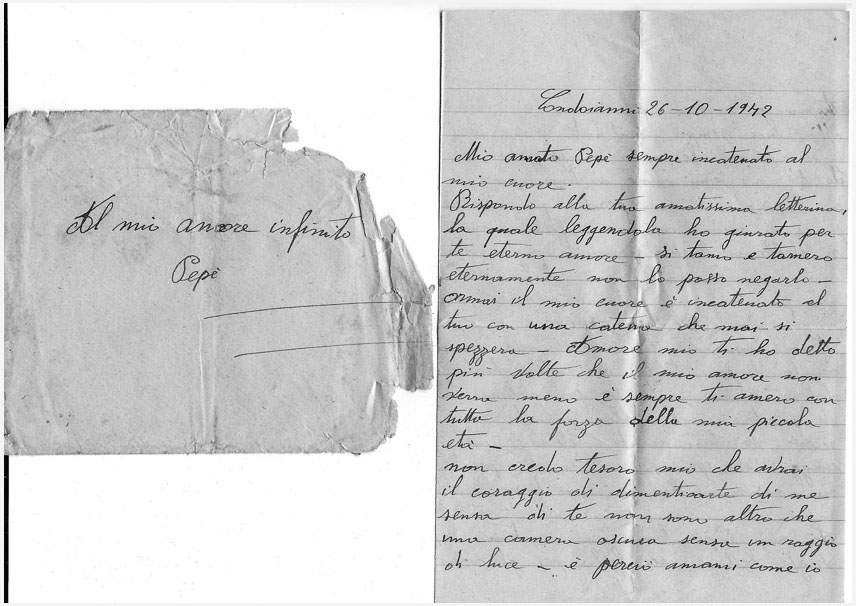 Al mio amore infinito
Pepè
Condoianni 26-10-1942
Mio amato Pepè sempre incatenato al
mio cuore.
Rispondo alla tua amatissima letterina,
la quale leggendola ho giurato per
te eterno amore - si tamo e tamero
eternamente non lo posso negarlo -
ormai il mio cuore è incatenato al
tuo con una catena che mai si
spezzera - Amore mio ti ho detto
più volte che il mio amore non
verra meno è sempre ti amero con
tutta la forza della mia piccola
età -
non credo tesoro mio che avrai
il coraggio di dimenticarte di me
sensa di te non sono altro che
una camera oscura sensa un raggio
di luce - è perciò amami come io